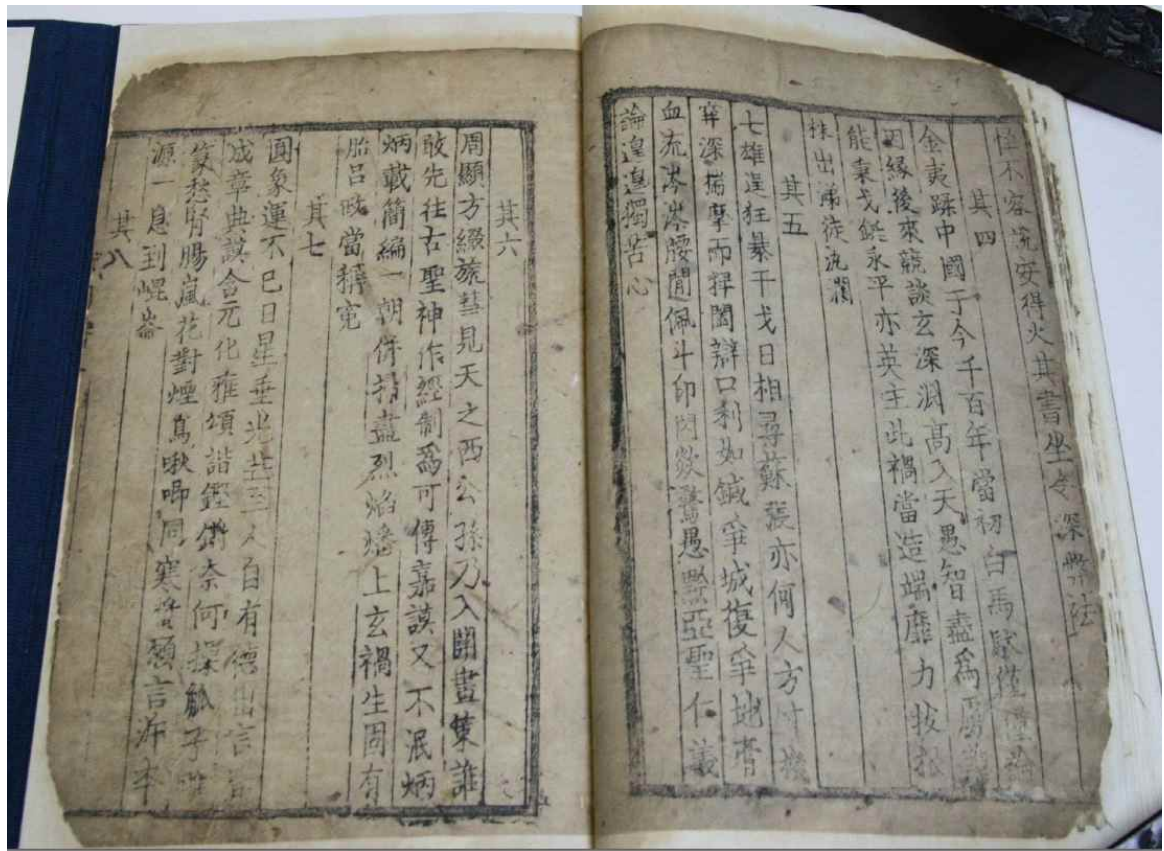 怪不容院安得火其書坐令深弊法
其四
金夷蹂中國于今千百年當初白馬駄
因緣後來競談玄深淵高入天愚智盡爲
能秉戈鋋永平亦英主此禍當造端靡力拔
抹出弟徒洗瀾
其五
七雄逞狂暴干戈日相尋蘇張亦何人方寸機
穽深揣摩而捭闔辯口利如鍼爭城復爭地膏
血流岑岑腰間佩斗印閃欻驚愚黔亞聖仁義
論遑遑獨苦心
其六
周顯方綴旒彗見天之西公孫乃入關畫策誰
敢先往古聖神作經制爲可傳嘉謨又不泯炳
炳載簡編一朝併掃盡烈焰蟠上玄禍生固有
胎呂政當稱寃
其七
圓象運不已日星垂光芒至人自有德出言
成章典謨含元化雅頌諧鏗鏘奈何操觚子
篆愁腎腸嵐花對煙鳥啾喞同寒螿願言泝本
源一息到崐崙
其八